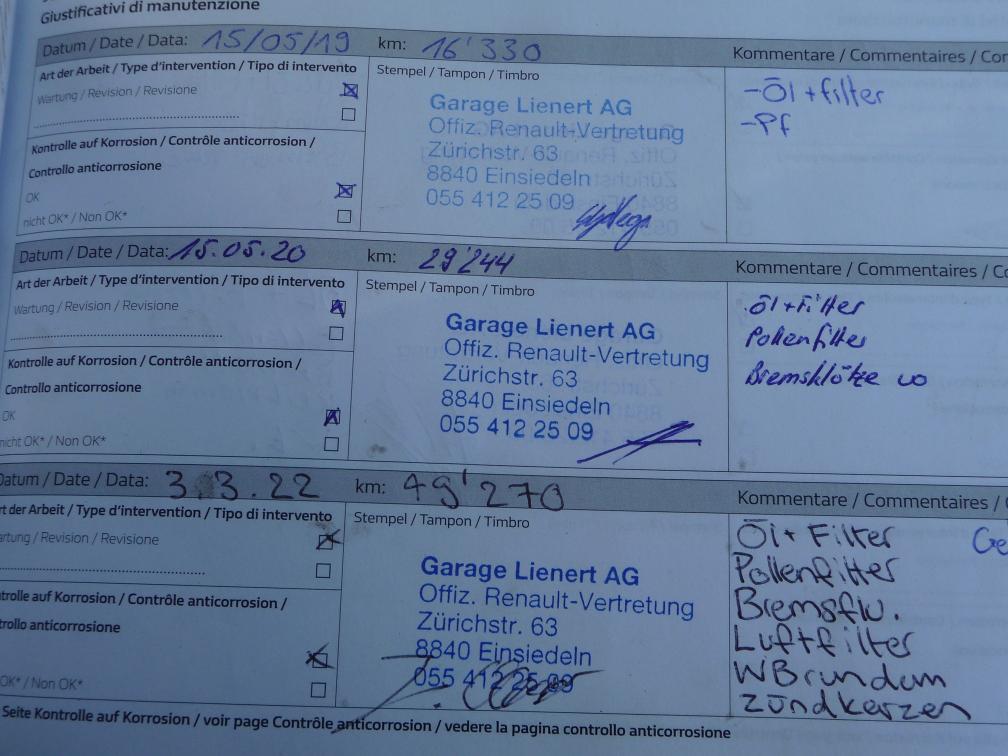 Giustificativi di manutenzione
Datum / Date / Data: 15/05/19 km: 16'330 Kommentare / Commentaires / Co
Art der Arbeit / Type d'intervention / Tipo di intervento
Stempel / Tampon / Timbro
Wartung / Revision / Revisione
- Öl + filter
- Pf
Garage Lienert AG
Offiz. Renault-Vertretung
Zürichstr. 63
8840 Einsiedeln
055 412 25 09
Kontrolle auf Korrosion / Contrôle anticorrosion /
Controllo anticorrosione
OK
nicht OK* / Non OK*
Datum / Date / Data: 15.05.20 km: 29'244 Kommentare / Commentaires / Co
Art der Arbeit / Type d'intervention / Tipo di intervento
Stempel / Tampon / Timbro
Wartung / Revision / Revisione
Öl + Filter
Pollenfilter
Bremsklötze vo
Garage Lienert AG
Offiz. Renault-Vertretung
Zürichstr. 63
8840 Einsiedeln
055 412 25 09
Kontrolle auf Korrosion / Contrôle anticorrosion /
Controllo anticorrosione
OK
nicht OK* / Non OK*
Datum / Date / Data: 3.3.22 km: 49'270 Kommentare / Commentaires /
rt der Arbeit / Type d'intervention / Tipo di intervento
Stempel / Tampon / Timbro
artung / Revision / Revisione
Öl + Filter Ge
Pollenfilter
Bremsflü.
Luftfilter
WB rundum
Zündkerzen
Garage Lienert AG
Offiz. Renault-Vertretung
Zürichstr. 63
8840 Einsiedeln
055 412 25 09
ntrolle auf Korrosion / Contrôle anticorrosion /
trollo anticorrosione
OK* / Non OK*
Seite Kontrolle auf Korrosion / voir page Contrôle anticorrosion / vedere la pagina controllo anticorrosione